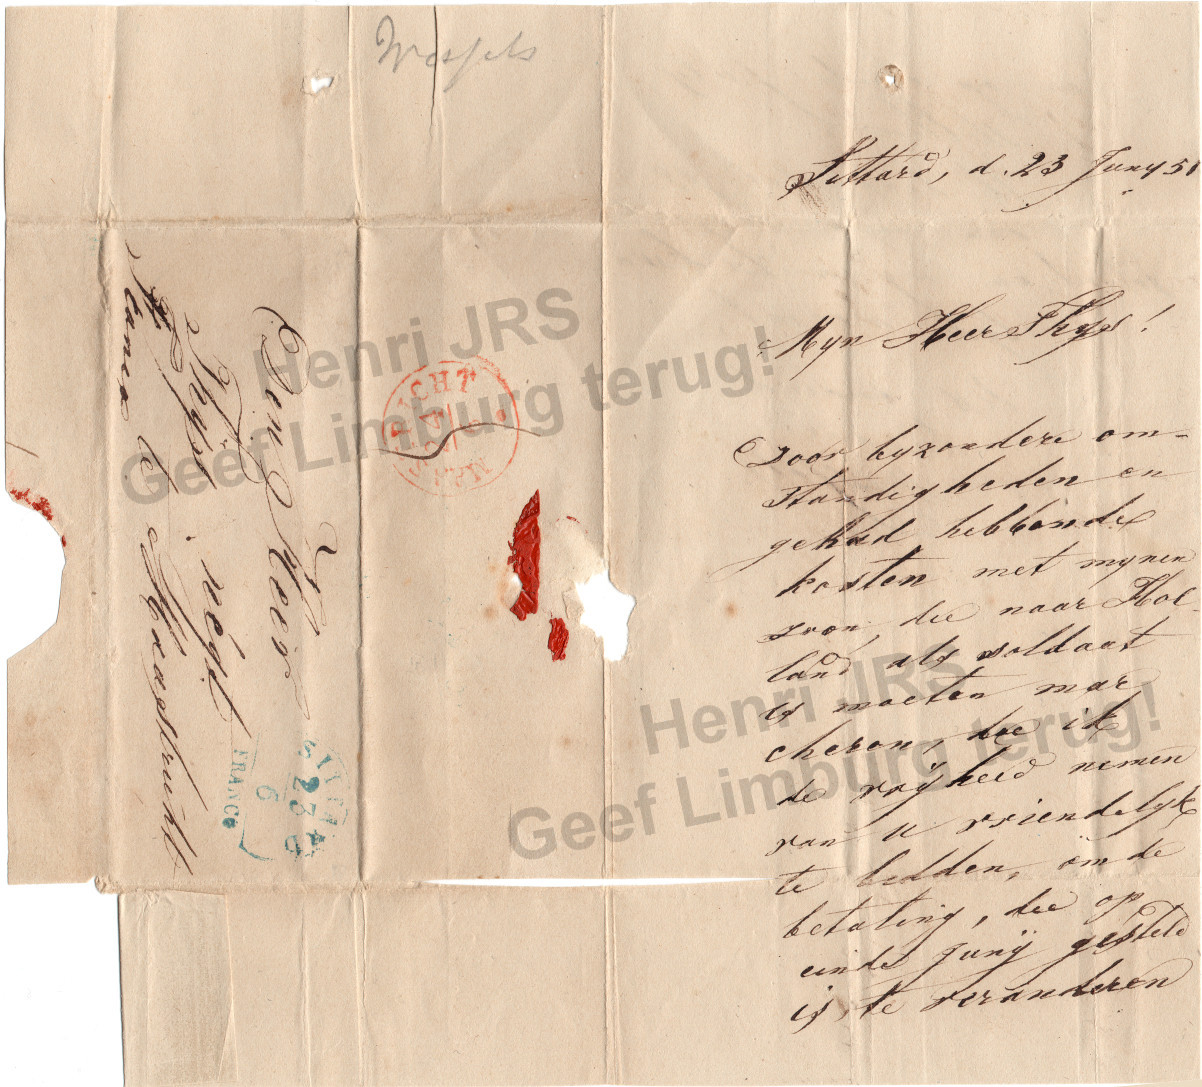 Wessels
Sittard, d. 23 Juny 51
Myn Heer Thys!
Door byzondere om-
standigheden en
gehad hebbende
kosten met mynen
zoon, die naar Hol
land als soldaat
is moeten mar
cheren, doe ik
de vryheid nemen
van u vriendelyk
te bidden, om de
betaling, die op
einde Junij gesteld
is, te veranderen
Den Heer
Thys, negt
te Maastricht
SITTARD
23
6
FRANCO
Henri JRS
Geef Limburg terug!
Henri JRS
Geef Limburg terug!